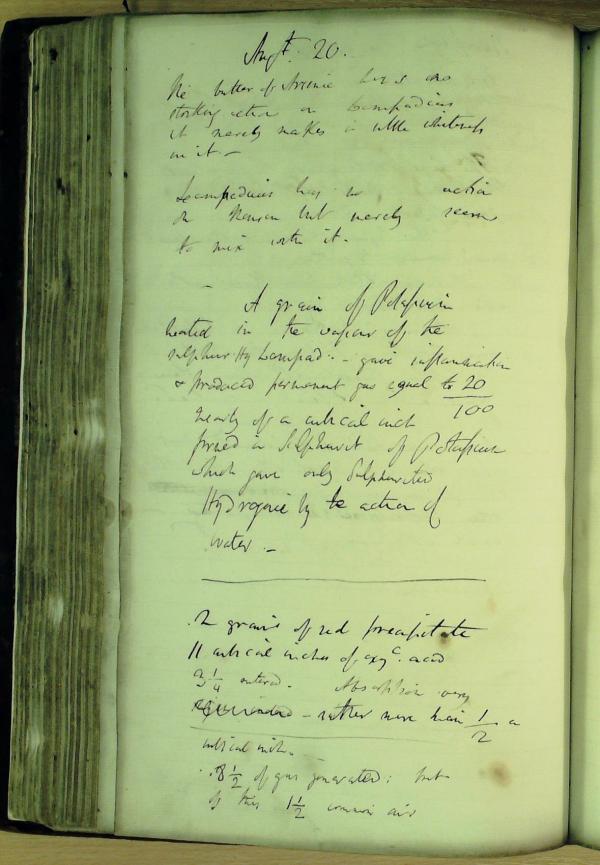 Augt. 20.
The butter of Arsenic has no
striking action on Lampadius
it merely makes a little whiteness
in it -
Lampadius has no action
on but merely seems
to mix with it.
A grain of Potassium
heated in the vapour of the
sulphur Hy Lampad. - gave inflammation
& produced permanent gas equal to 20/100
nearly of a cubical inch
formed a Sulphuret of Potassium
which gave only Sulphuretted
Hydrogene by the action of
water -
2 grains of red precipitate
11 cubical inches of oxyc. acid
3 1/4 entered. Absorption very
- rather more than 1/2 a
cubical inch.
8 1/2 of gas generated: but
of this 1 1/2 common air